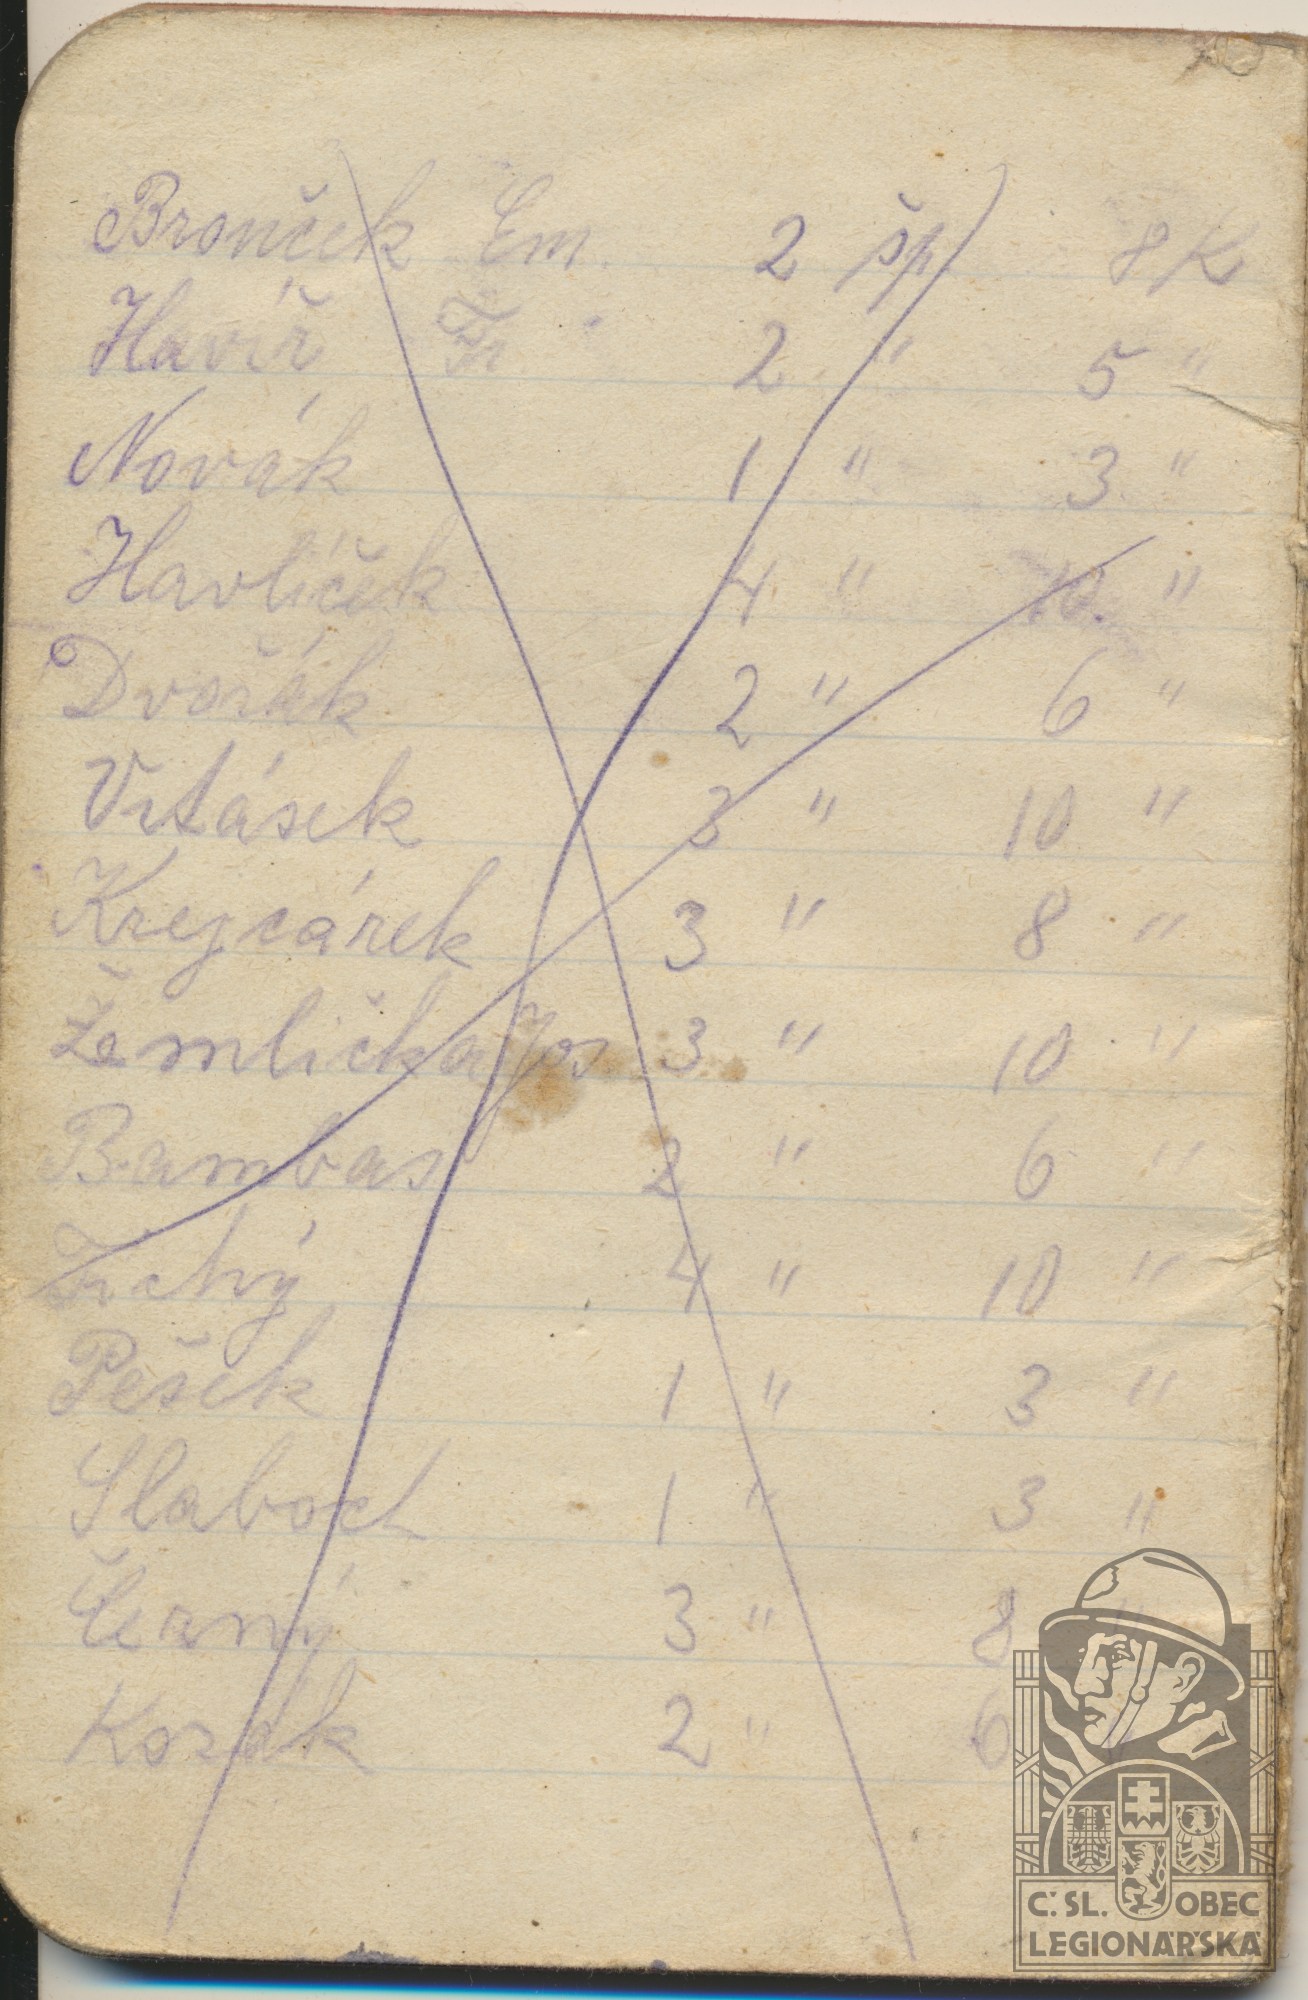 Bronček Em. 2 šp. 8 K
Havíř Fr. 2 " 5 "
Novák 1 " 3 "
Havlíček 4 " 10. "
Dvořák 2 " 6 "
Vrtásek 3 " 10 "
Krejcárek 3 " 8 "
Žemlička Jos 3 " 10 "
Bambas 2 " 6 "
Tichý 4 " 10 "
Pešek 1 " 3 "
Slaboch 1 " 3 "
Černý 3 " 8 "
Kozák 2 " 6 "
Č. SL. OBEC
LEGIONÁŘSKÁ